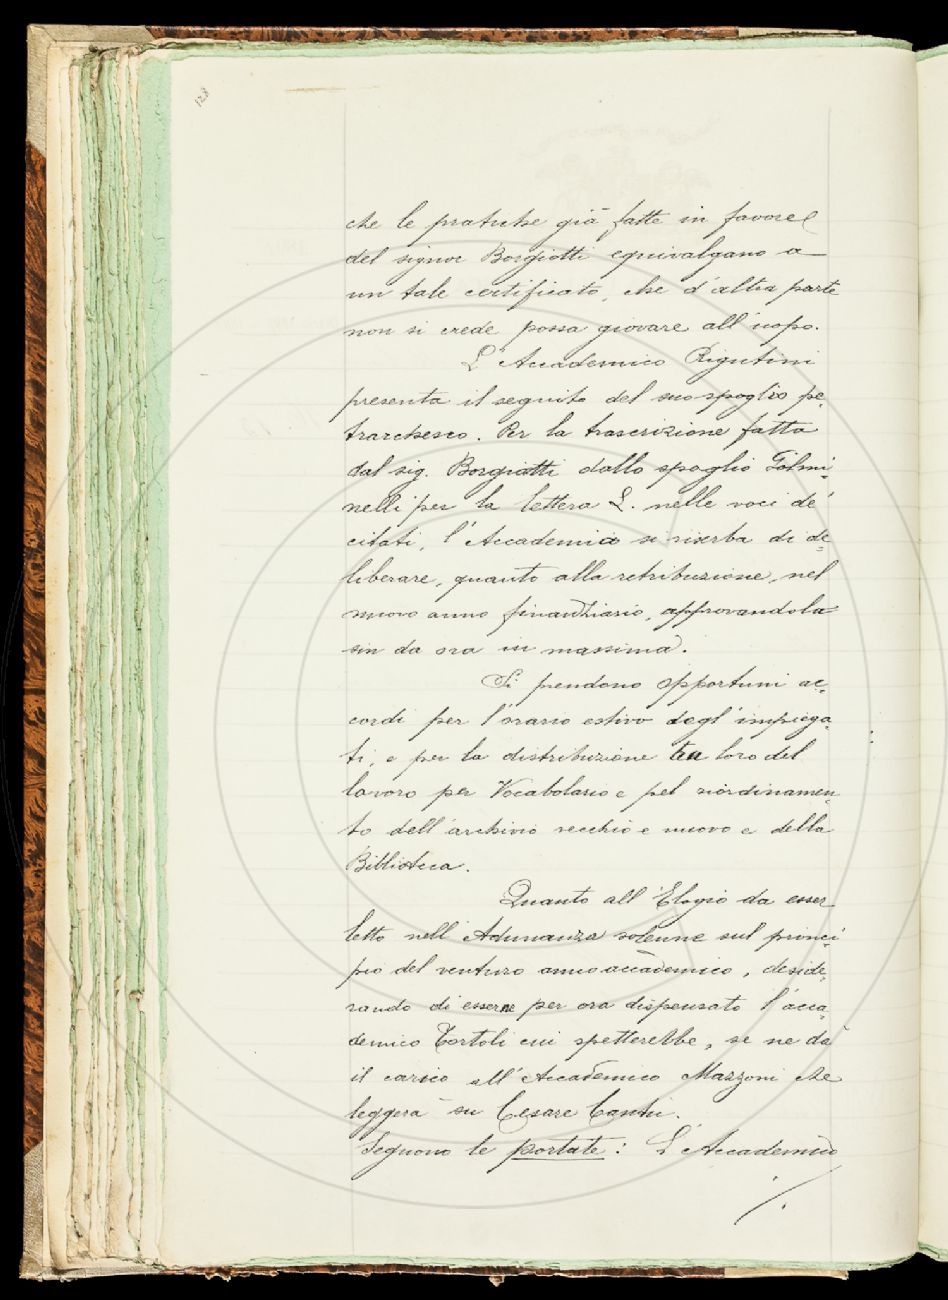 128
che le pratiche già fatte in favore
del signor Borgiotti equivalgano a
un tale certificato, che d'altra parte
non si crede possa giovare all'uopo.
L'Accademico Rigutini
presenta il seguito del suo spoglio pe-
trarchesco. Per la trascrizione fatta
dal sig. Borgiotti dallo spoglio Tolmi-
nelli per la lettera L. nelle voci de'
citati, l'Accademia si riserba di de-
liberare, quanto alla retribuzione, nel
nuovo anno finanziario, approvandola
sin da ora in massima.
Si prendono opportuni ac-
cordi per l'orario estivo degl'impiega-
ti, e per la distribuzione tra loro del
lavoro per Vocabolario e pel riordinamen-
to dell'archivio vecchio e nuovo e della
Biblioteca.
Quanto all'Elogio da esser
letto nell'Adunanza solenne sul princi-
pio del venturo anno accademico, deside-
rando di esserne per ora dispensato l'acca-
demico Tortoli cui spetterebbe, se ne dà
il carico all'Accademico Mazzoni che
leggerà su Cesare Cantù.
Seguono le portate: L'Accademico
./.